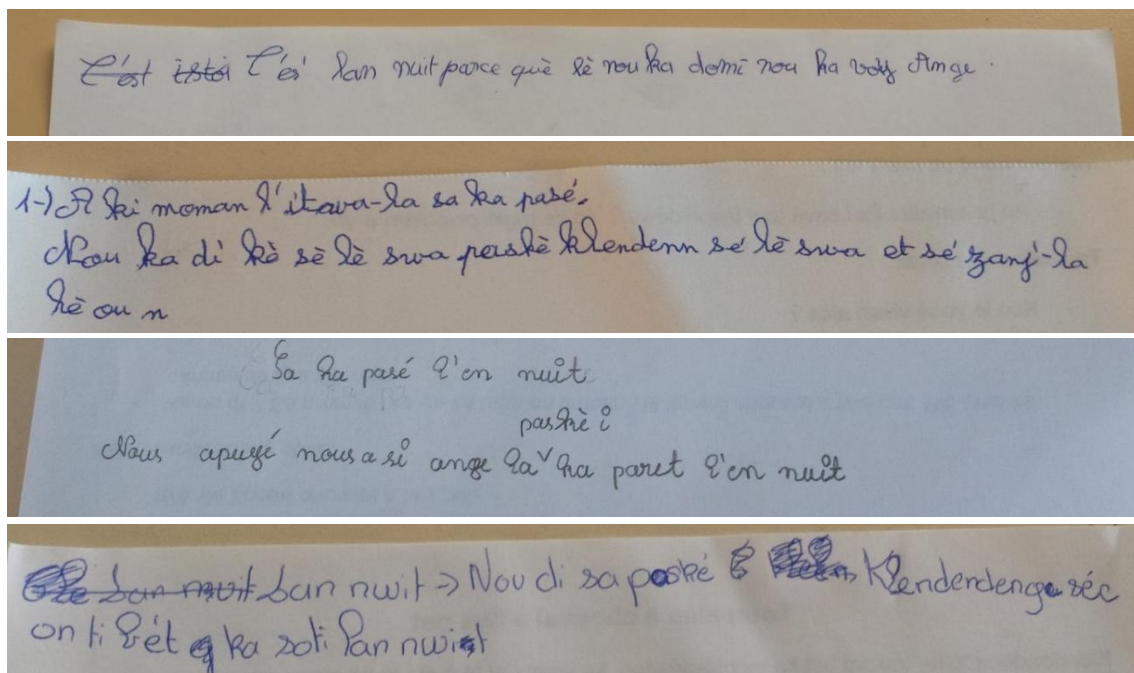 C'est istoi C'és lan nuit parce què lè nou ka domi nou ka voy Ange.
1-) A ki moman l'istwa-la sa ka pasé.
Nou ka di kè sè lè swa paskè klendenn sé lè swa et sé zanj-la
kè ou n
Sa ka pasé l'en nuit
paskè i
Nous apuyé nous a si ange la ka paret l'en nuit
lan nuit lan nwit → Nou di sa paské Klendendenga séc
on ti bèt ka soti lan nwit